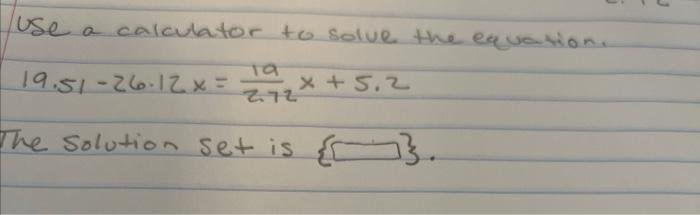 Use a calculator to solve the equation.
19.51 - 26.12x = 19/2.72 x + 5.2
The solution set is {▭}.